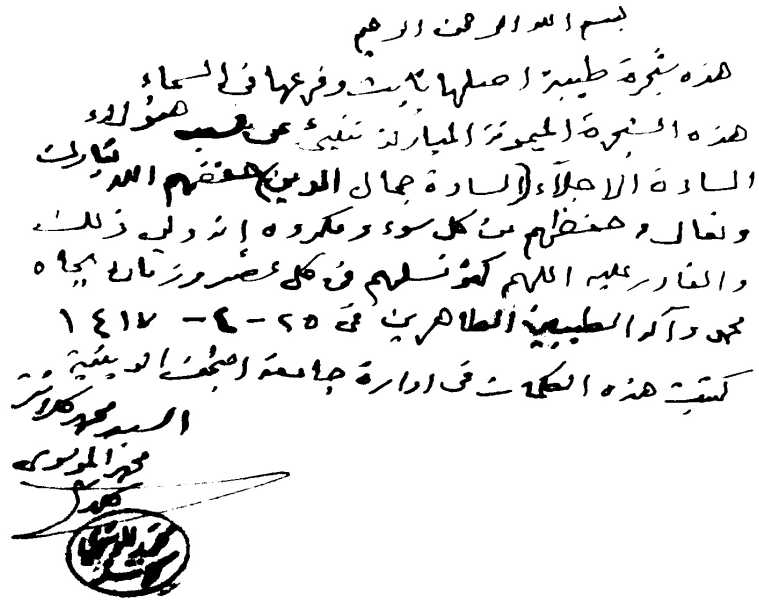 بسم الله الرحمن الرحيم
هذه شجرة طيبة اصلها ثابت وفرعها في السماء
هذه الشجرة الميمونة المباركة تنبئ عن نسب هؤلاء
السادة الاجلاء (السادة جمال الدين) حفظهم الله تبارك
وتعالى وحفظهم من كل سوء ومكروه إنه ولي ذلك
والقادر عليه اللهم كثر نسلهم في كل عصر وزمان بجاه
محمد وآله الطيبين الطاهرين في ٢٥ - ٤ - ١٤١٧
كتبت هذه الكلمات في ادارة جامعة النجف الدينية
السيد محمد كلانتر
محمد الموسوي
كلانتر
محمد الموسوي كلانتر